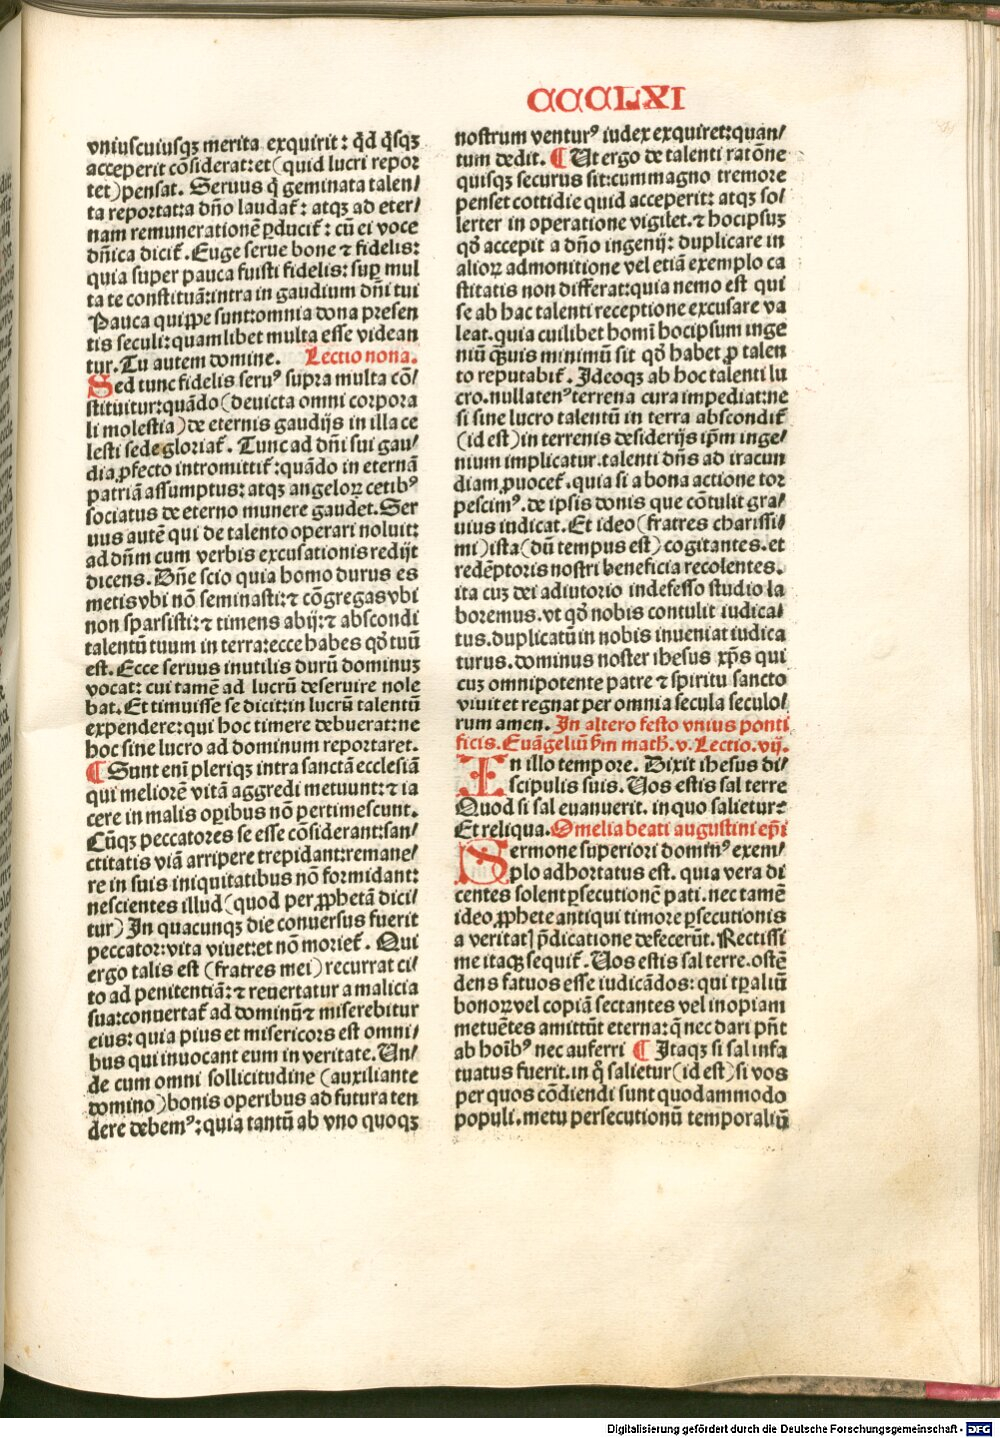 CCCCLXI
vniuscuiusqꝫ merita exquirit: q̄d q̄sqꝫ
acceperit cōsiderat: et (quid lucri repor
tet) pensat. Seruus q̄ geminata talen⸗
ta reportat: a dn̄o laudat᷑: atqꝫ ad eter⸗
nam remunerationē ꝑducit᷑: cū ei voce
dn̄ica dicit᷑. Euge serue bone ⁊ fidelis:
quia super pauca fuisti fidelis: suꝑ mul
ta te constituā: intra in gaudium dn̄i tui
Pauca quippe sunt: omnia dona presen
tis seculi: quamlibet multa esse videan
tur. Tu autem domine. Lectio nona.
Sed tunc fidelis seruꝰ supra multa cō⸗
stituitur: quādo (deuicta omni corpora
li molestia) de eternis gaudijs in illa ce
lesti sede gloriat᷑. Tunc ad dn̄i sui gau⸗
dia ꝓfecto intromittit᷑: quādo in eternā
patriā assumptus: atqꝫ angeloꝝ cetibꝰ
sociatus de eterno munere gaudet. Ser
uus autē qui de talento operari noluit:
ad dn̄m cum verbis excusationis redijt
dicens. Dn̄e scio quia homo durus es
metis vbi nō seminasti: ⁊ cōgregas vbi
non sparsisti: ⁊ timens abij: ⁊ abscondi
talentū tuum in terra: ecce habes qd̄ tuū
est. Ecce seruus inutilis durū dominuꝫ
vocat: cui tamē ad lucrū deseruire nole
bat. Et timuisse se dicit: in lucrū talentū
expendere: qui hoc timere debuerat: ne
hoc sine lucro ad dominum reportaret.
¶ Sunt eni᷑ pleriqꝫ intra sanctā ecclesiā
qui meliorē vitā aggredi metuunt: ⁊ ia
cere in malis oꝑibus nō pertimescunt.
Cūqꝫ peccatores se esse cōsiderant: san⸗
ctitatis viā arripere trepidant: remane⸗
re in suis iniquitatibus nō formidant:
nescientes illud (quod per ꝓphetā dici
tur) In quacunqꝫ die conuersus fuerit
peccator: vita viuet: et nō moriet᷑. Qui
ergo talis est (fratres mei) recurrat ci⸗
to ad penitentiā: ⁊ reuertatur a malicia
sua: conuertat᷑ ad dominū ⁊ miserebitur
eius: quia pius et misericors est omni⸗
bus qui inuocant eum in veritate. Un⸗
de cum omni sollicitudine (auxiliante
domino) bonis operibus ad futura ten
dere debemꝰ: quia tantū ab vno quoqꝫ
nostrum venturꝰ iudex exquiret: quan⸗
tum dedit. ¶ Ut ergo de talenti ratōne
quisqꝫ securus sit: cum magno tremore
penset cottidie quid acceperit: atqꝫ sol
lerter in operatione vigilet. ⁊ hoc ipsuꝫ
qd̄ accepit a dn̄o ingenij: duplicare in
alioꝝ admonitione vel etiā exemplo ca
stitatis non differat: quia nemo est qui
se ab hac talenti receptione excusare va
leat. quia cuilibet homi᷑ hoc ipsum inge
niū q̄uis minimū sit qd̄ habet ꝓ talen
to reputabit᷑. Ideoqꝫ ab hoc talenti lu
cro. nullatenꝰ terrena cura impediat: ne
si sine lucro talentū in terra abscondit᷑
(id est) in terrenis desiderijs ip̄m inge⸗
nium implicatur. talenti dn̄s ad iracun
diam ꝓuocet᷑. quia si a bona actione tor
pescimꝰ. de ipsis donis que cōtulit gra⸗
uius iudicat. Et ideo (fratres charissi⸗
mi) ista (dū tempus est) cogitantes. et
redēptoris nostri beneficia recolentes.
ita cuꝫ dei adiutorio indefesso studio la
boremus. vt qd̄ nobis contulit iudica⸗
tus. duplicatū in nobis inueniat iudica
turus. dominus noster ihesus xp̄s qui
cuꝫ omnipotente patre ⁊ spiritu sancto
viuit et regnat per omnia secula seculo⸗
rum amen. In altero festo vnius ponti
ficis. Euāgeliū ẜm math̄. v. Lectio. vij.
In illo tempore. Dixit ihesus di⸗
scipulis suis. Uos estis sal terre
Quod si sal euanuerit. in quo salietur?
Et reliqua. Omelia beati augustini ep̄i
Sermone superiori dominꝰ exem⸗
plo adhortatus est. quia vera di
centes solent ꝑsecutionē pati. nec tamē
ideo ꝓphete antiqui timore ꝑsecutionis
a veritatꝭ p̄dicatione defecerūt. Rectissi
me itaqꝫ sequit᷑. Uos estis sal terre. ostē
dens fatuos esse iudicādos: qui tꝑaliū
bonoꝝ vel copiā sectantes vel inopiam
metuētes amittūt eterna: q̄ nec dari pn̄t
ab hoi᷑bꝰ nec auferri ¶ Itaqꝫ si sal infa
tuatus fuerit. in q̊ salietur (id est) si vos
per quos cōdiendi sunt quodammodo
populi. metu persecutionū temporaliū
Digitalisierung gefördert durch die Deutsche Forschungsgemeinschaft - DFG